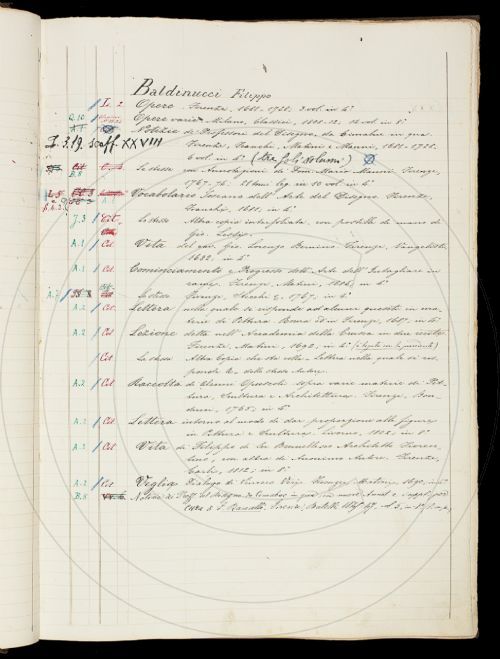 Baldinucci Filippo
L. 2 Opere. Firenze, 1681-1728. 3. vol. in 4°
Q. 10 Opere varie. Milano, Classici, 1808-12. 14 vol. in 8°
A. 1 Notizie de' Professori del Disegno, da Cimabue in qua.
I. 3. 19. scaff. XXVIII
Firenze, Franchi, Matini e Manni, 1681-1728.
6 vol. in 4° (tre soli volumi)
B. 8 Le stesse con Annotazioni di Dom. Maria Manni. Firenze,
1767-74. 21 tomi leg. in 10 vol. in 4°
Vocabolario Toscano dell'Arte del Disegno. Firenze,
Franchi, 1681, in 4°
J. 3 Cit. Lo stesso Altra copia interfogliata, con postille di mano di
Gio.
A. 1 Cit. Vita del cav. Gio. Lorenzo Bernino. Firenze, Vangelisti,
1682, in 4°
A. 1 Cit. Cominciamento e Progresso dell'Arte dell'Intagliare in
rame. Firenze, Matini, 1686, in 4°
A. 2 Lo stesso Firenze, Stecchi &, 1767, in 4°
A. 2 Cit. Lettera nella quale si risponde ad alcuni quesiti in ma-
terie di Pittura. Roma ed in Firenze, 1687, in 4°
A. 2 Cit. Lezione detta nell'Accademia della Crusca in due recite.
Firenze, Matini, 1692, in 4° (è legato con la precedente)
Cit. La stessa Altra Copia che sta colla - Lettera nella quale si ris-
ponde &. dello stesso Autore.
A. 2 Cit. Raccolta di alcuni Opuscoli sopra varie materie di Pit-
tura, Scultura e Architettura. Firenze, Bon-
ducci, 1765, in 4°
A. 2 Cit. Lettera intorno al modo di dar proporzione alle figure
in Pittura e Scultura. Livorno, 1802, in 8°
A. 2 Cit. Vita di Filippo di Ser Brunellesco Architetto Fioren-
tino, con altra di Anonimo Autore. Firenze,
Carli, 1812, in 8°
A. 2 Cit. Veglia Dialogo di Sincero Veri. Firenze, Matini, 1690, in 4°
B. 8 Notizie dei Proff. del disegno da Cimabue in qua, con nuove Annot. e suppl. per
cura di F. Ranalli. Firenze, Batelli